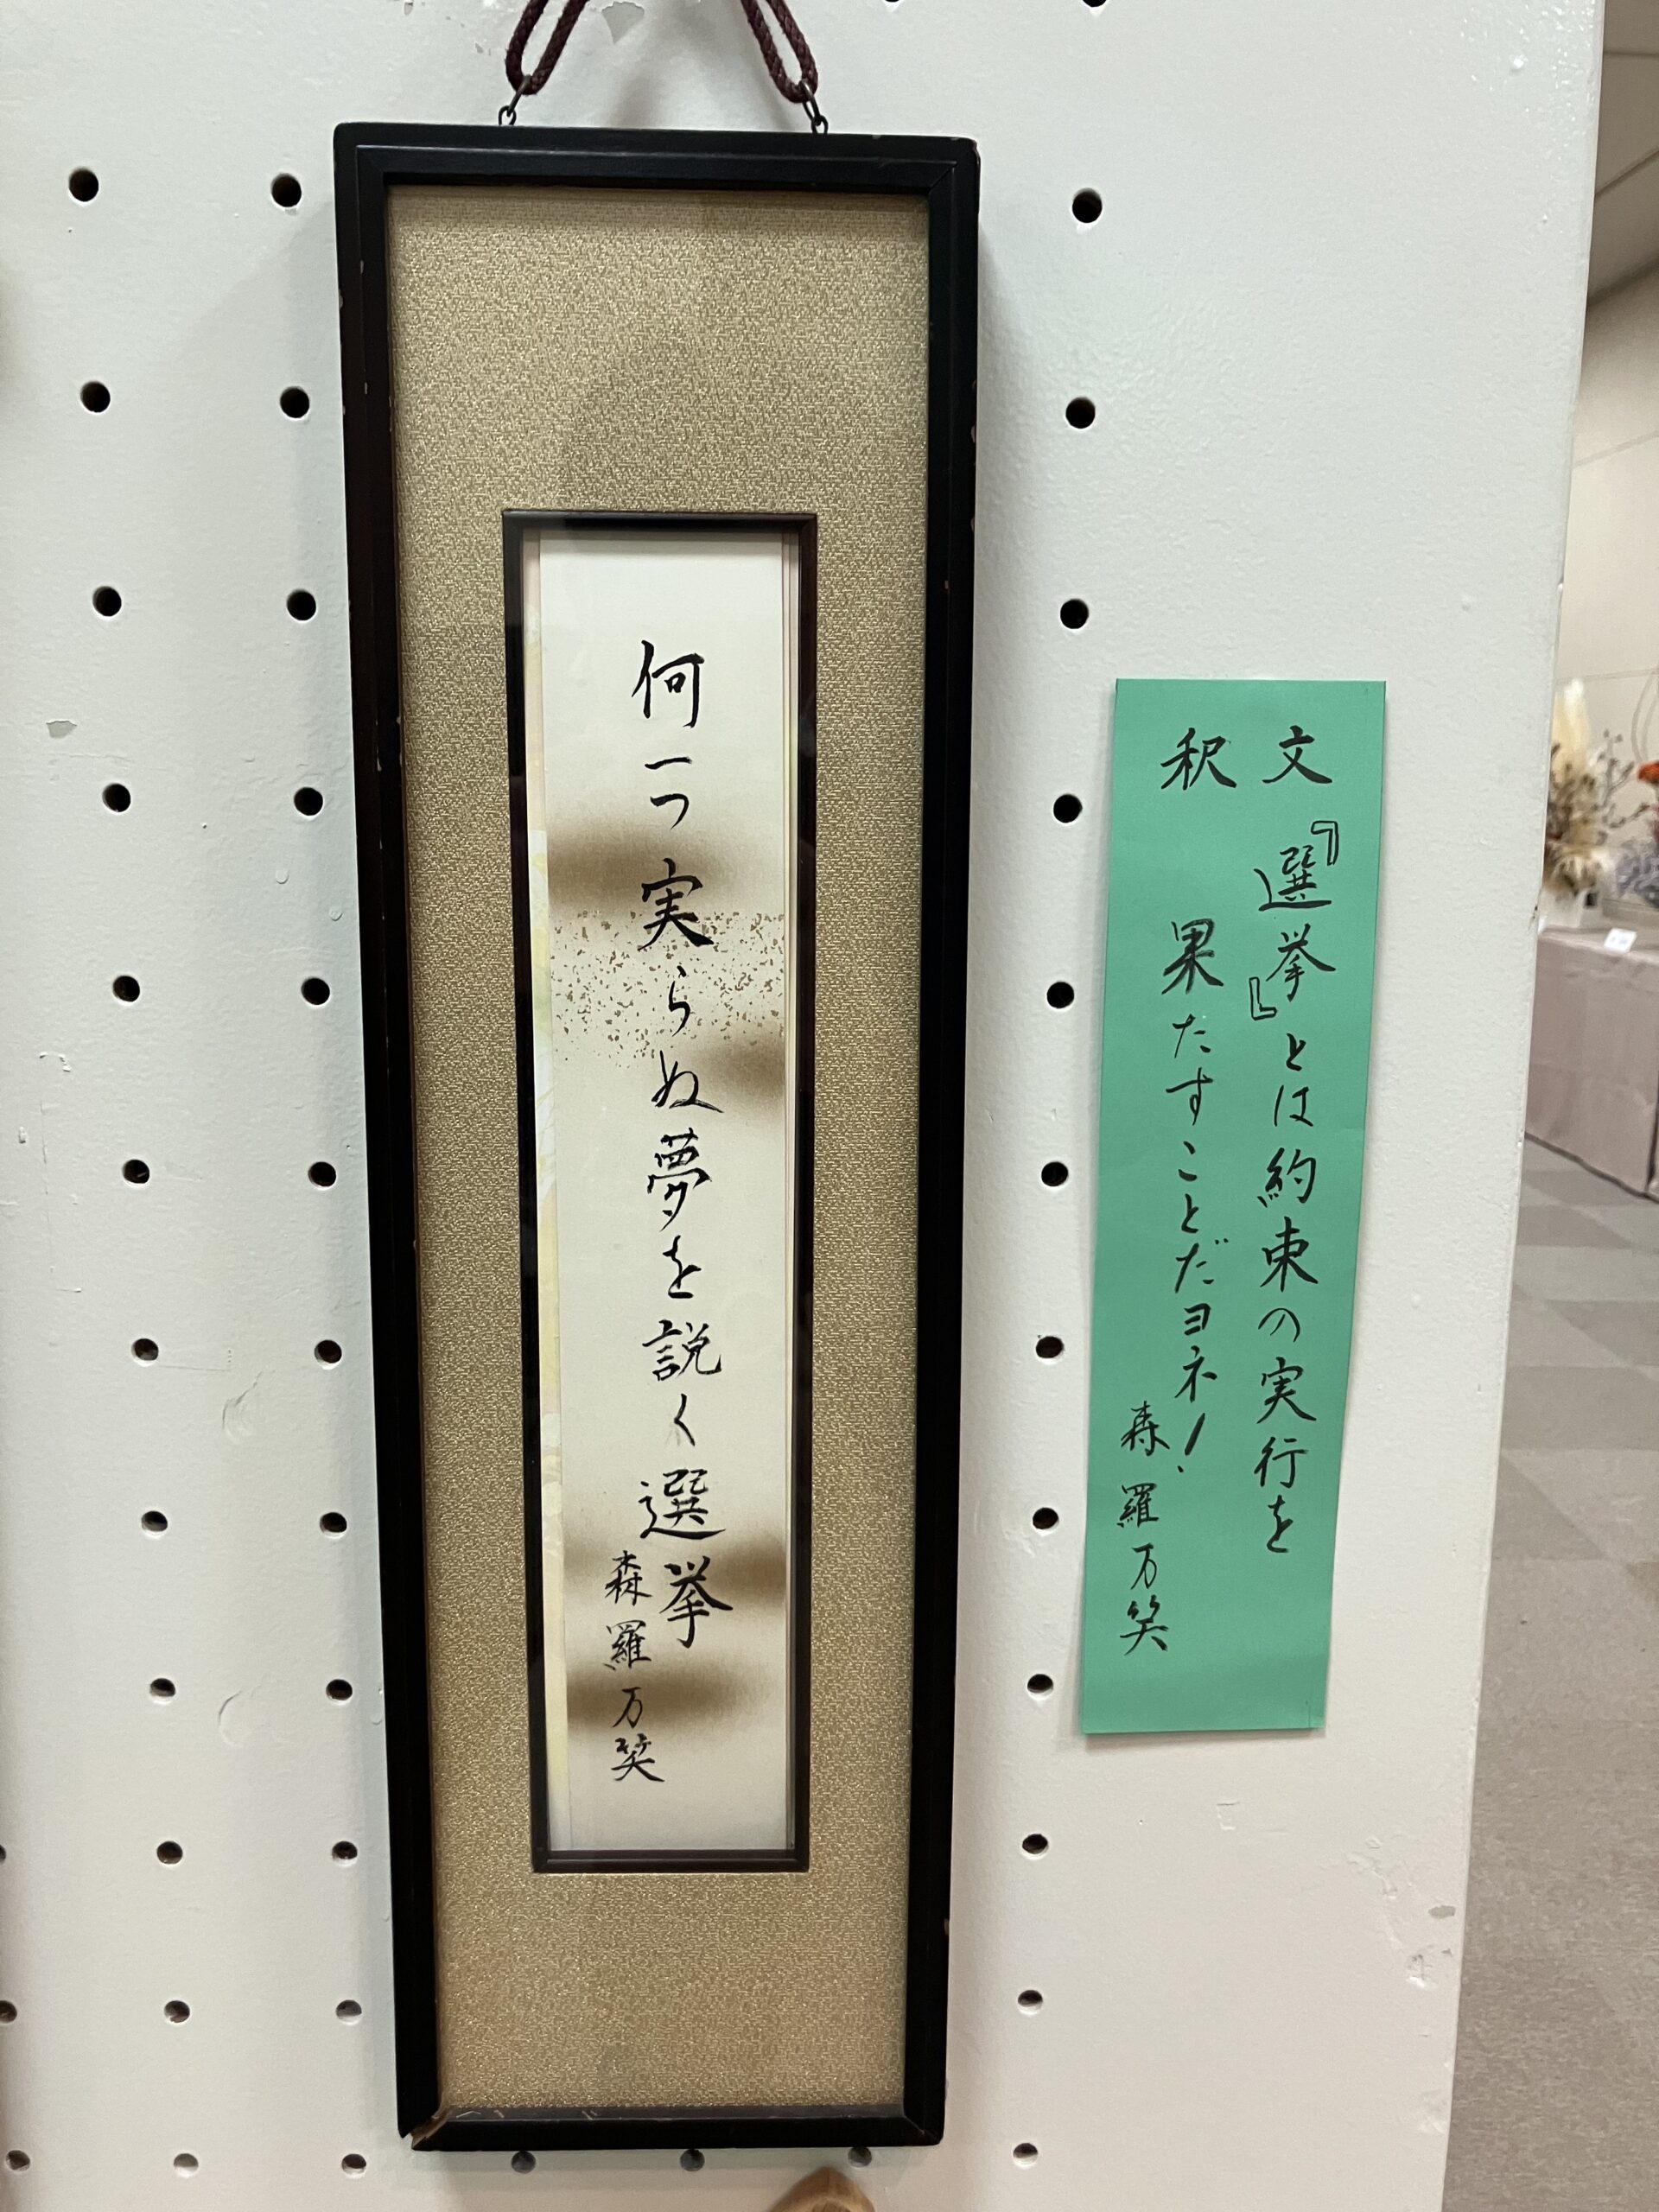 何一つ実らぬ夢を説く選挙
森羅万笑
文釈
『選挙』とは約束の実行を
果たすことだヨネ！
森羅万笑